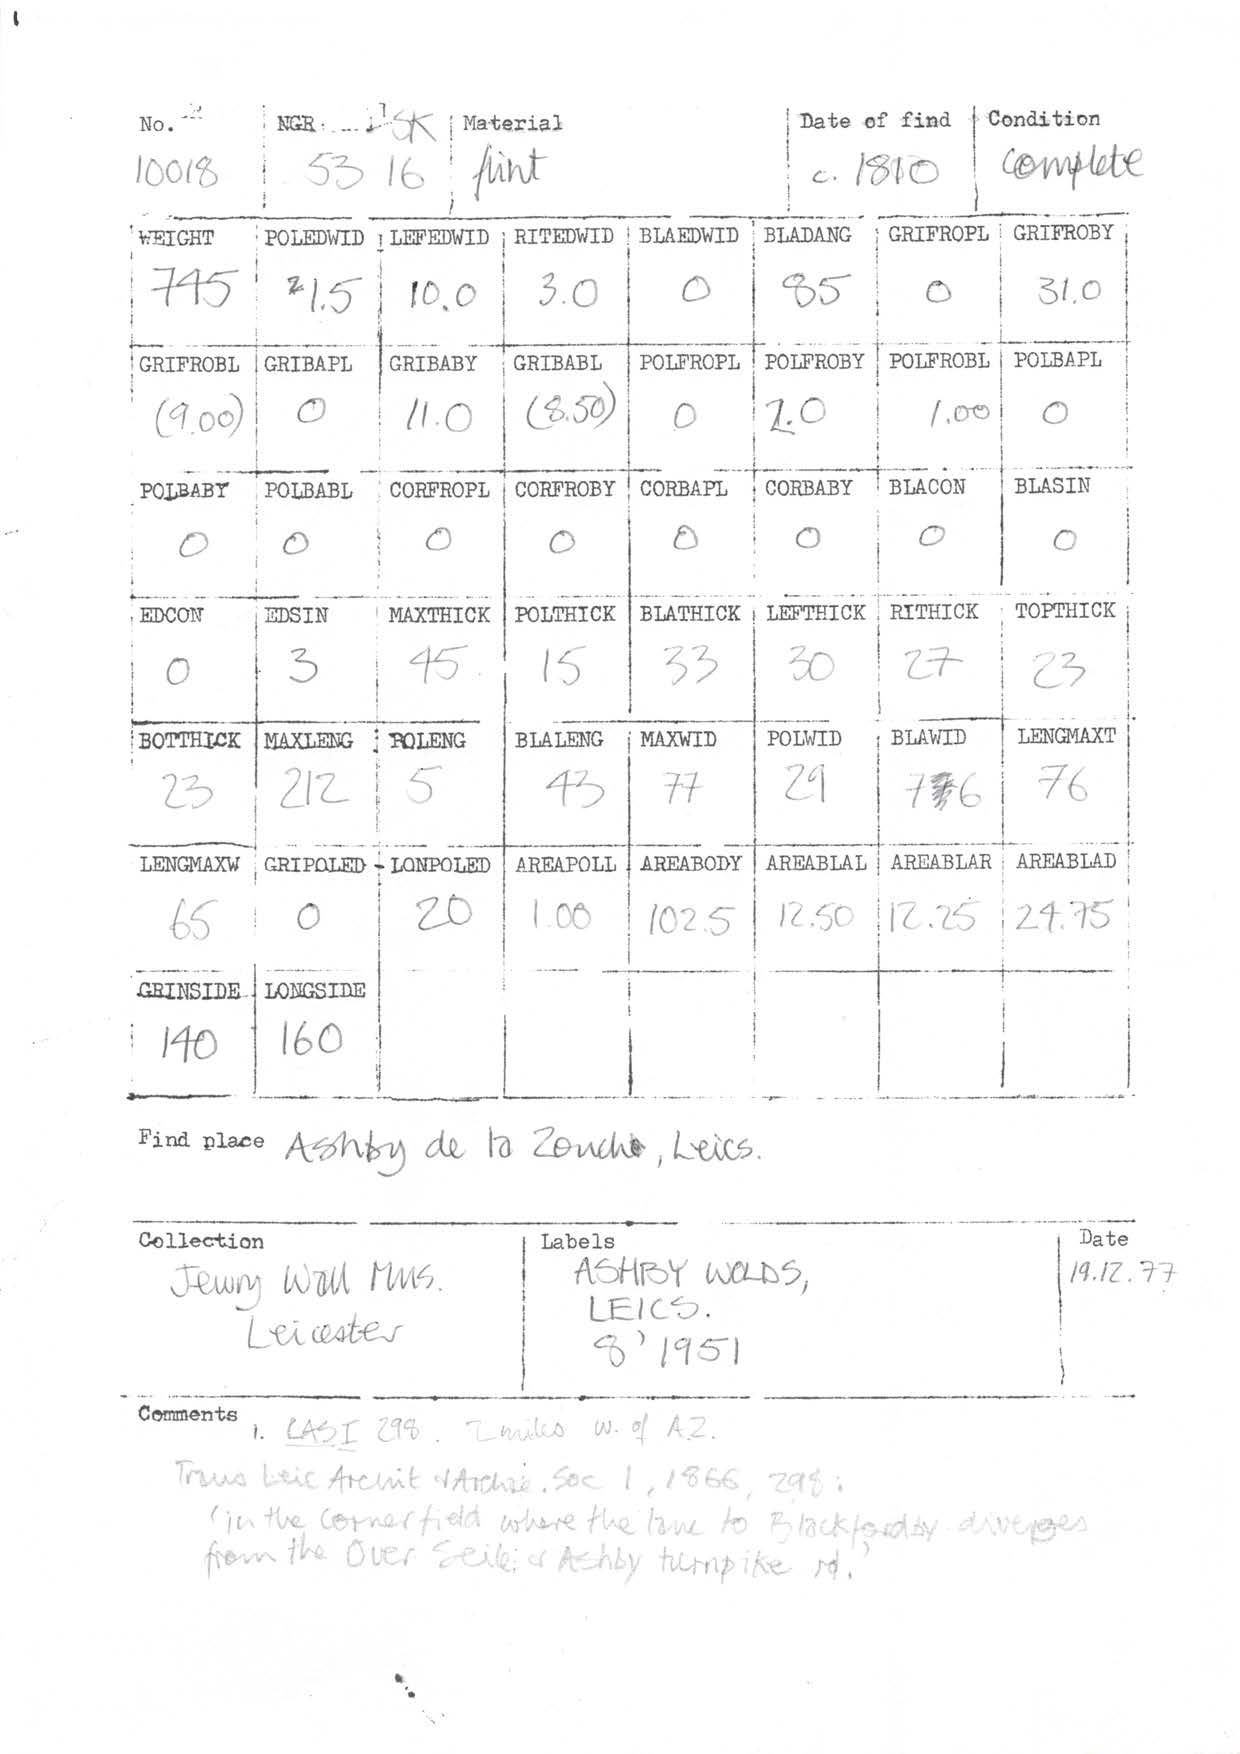 No. NGR: SK Material Date of find Condition
10018 53 16 flint c. 1810 complete
WEIGHT POLEDWID LEFEDWID RITEDWID BLAEDWID BLADANG GRIFROPL GRIFROBY
745 1.5 10.0 3.0 0 85 0 31.0
GRIFROBL GRIBAPL GRIBABY GRIBABL POLFROPL POLFROBY POLFROBL POLBAPL
(9.00) 0 11.0 (8.50) 0 2.0 1.00 0
POLBABY POLBABL CORFROPL CORFROBY CORBAPL CORBABY BLACON BLASIN
0 0 0 0 0 0 0 0
EDCON EDSIN MAXTHICK POLTHICK BLATHICK LEFTHICK RITHICK TOPTHICK
0 3 45 15 33 30 27 23
BOTTHICK MAXLENG POLENG BLALENG MAXWID POLWID BLAWID LENGMAXT
23 212 5 43 77 29 76 76
LENGMAXW GRIPOLED LONPOLED AREAPOLL AREABODY AREABLAL AREABLAR AREABLAD
65 0 20 1.00 102.5 12.50 12.25 24.75
GRINSIDE LONGSIDE
140 160
Find place Ashby de la Zouche, Leics.
Collection Labels Date
Jewry Wall Mus. ASHBY WOLDS, 19.12.77
Leicester LEICS.
8'1951
Comments 1. LASI 298. 2 miles w. of A.Z.
Trans Leic Archit & Archae. Soc 1, 1866, 298:
'in the corner field where the lane to Blackfordby diverges
from the Over Seile & Ashby turnpike rd.'